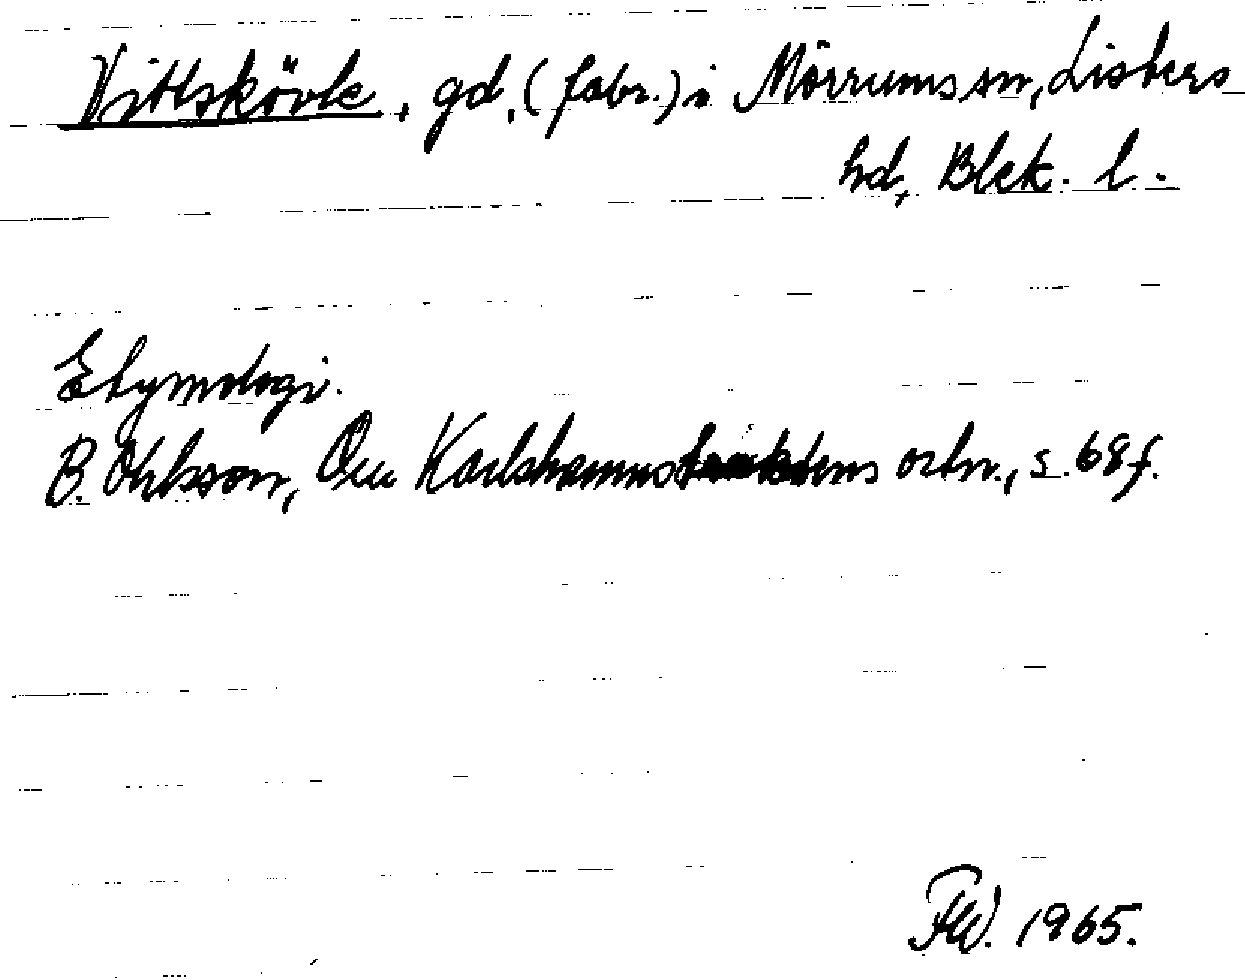 Vittskövle, gd, (fabr.) i Mörrums sn, Listers
hd, Blek. l.
Etymologi.
B. Ohlsson, Om Karlshamnstraktens ortn., s. 68 f.
1965.